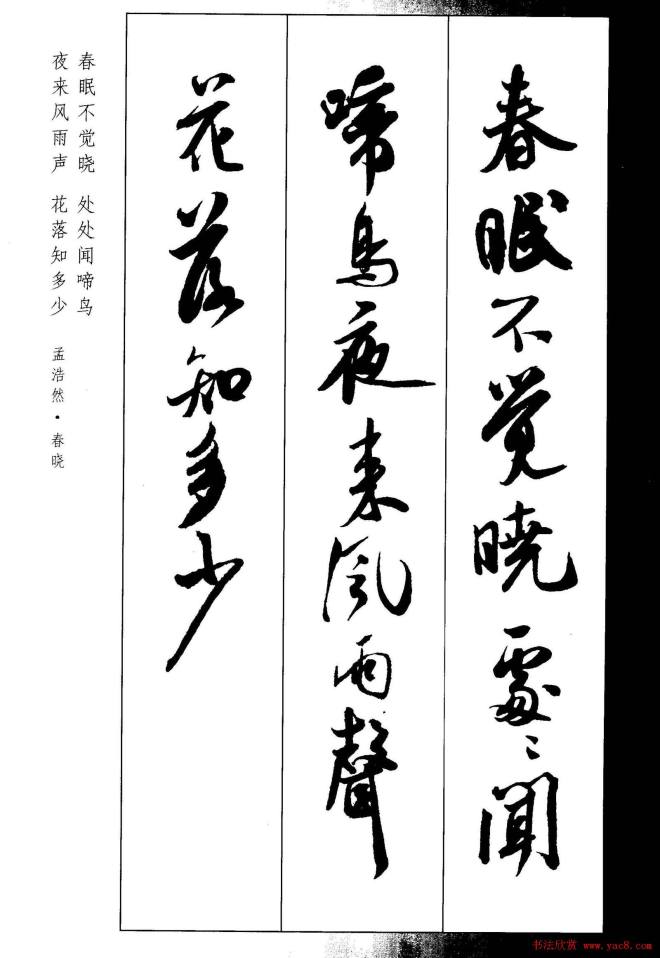 春眠不觉晓處〻闻
啼鸟夜来风雨聲
花落知多少
春眠不觉晓 处处闻啼鸟
夜来风雨声 花落知多少 孟浩然·春晓
书法欣赏 www.yac8.com